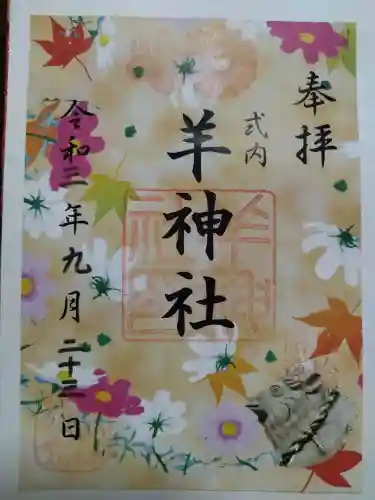 奉拝
式内
羊神社
令和三年九月二十三日